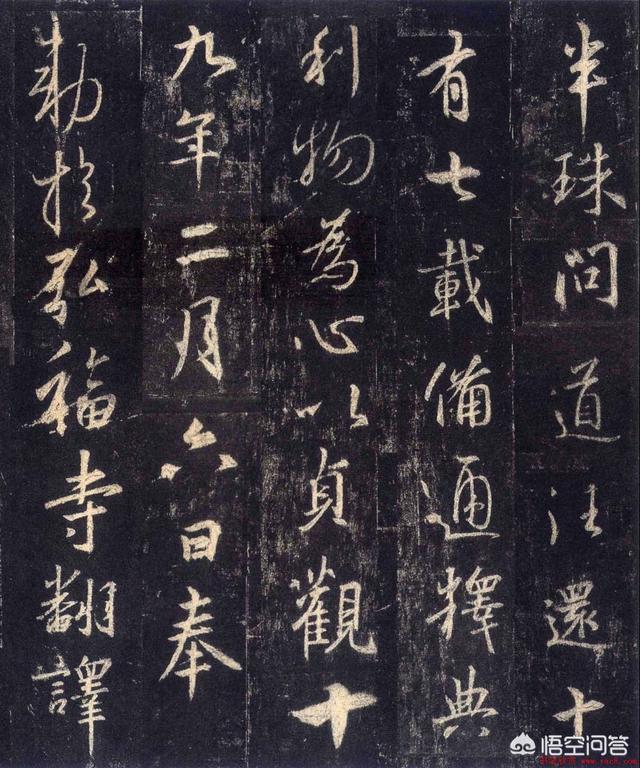 半珠問道往還十
有七載備通釋典
利物為心以貞觀十
九年二月六日奉
勅於弘福寺翻譯
悟空问答